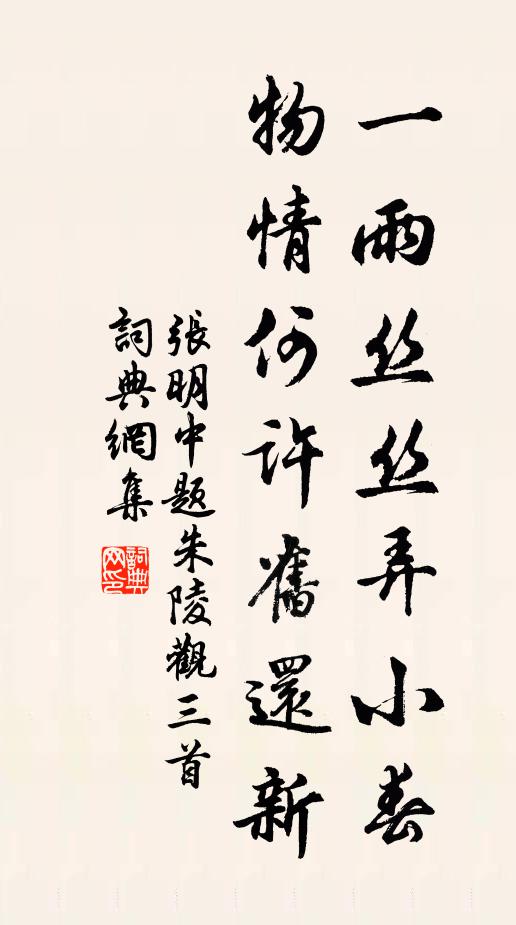 一雨丝丝弄小春
物情何许舊還新
張明中題朱陵觀三首
詞典網集
詞典网印